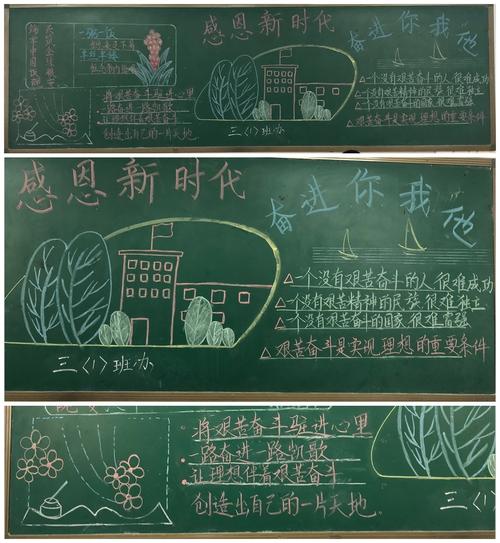 感恩新时代
奋进你我他
一粥一饭
将艰苦奋斗驻进心里
一路奋进一路凯歌
让理想伴着艰苦奋斗
创造出自己的一片天地
△一个没有艰苦奋斗的人,很难成功
△一个没有艰苦精神的民族,很难独立
△一个没有艰苦奋斗的国家,很难富强
△艰苦奋斗是实现理想的重要条件
三〈1〉班办
感恩新时代
奋进你我他
△一个没有艰苦奋斗的人,很难成功
△一个没有艰苦精神的民族,很难独立
△一个没有艰苦奋斗的国家,很难富强
△艰苦奋斗是实现理想的重要条件
三〈1〉班办
将艰苦奋斗驻进心里
一路奋进一路凯歌
让理想伴着艰苦奋斗
创造出自己的一片天地.
三〈1〉